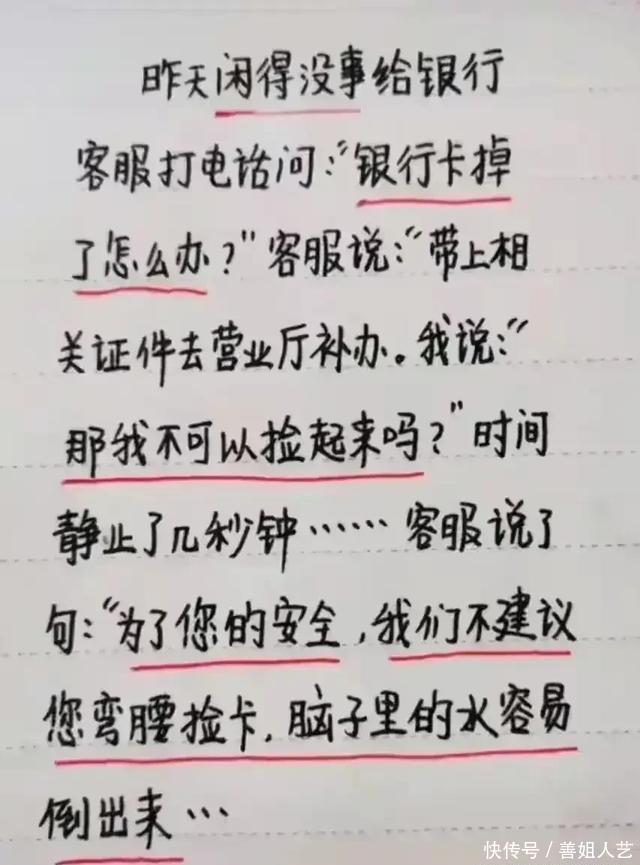 昨天闲得没事给银行
客服打电话问:“银行卡掉
了怎么办?”客服说:“带上相
关证件去营业厅补办。我说:“
那我不可以捡起来吗?”时间
静止了几秒钟……客服说了
句:“为了您的安全,我们不建议
您弯腰捡卡,脑子里的水容易
倒出来…
快传号/善姐人艺